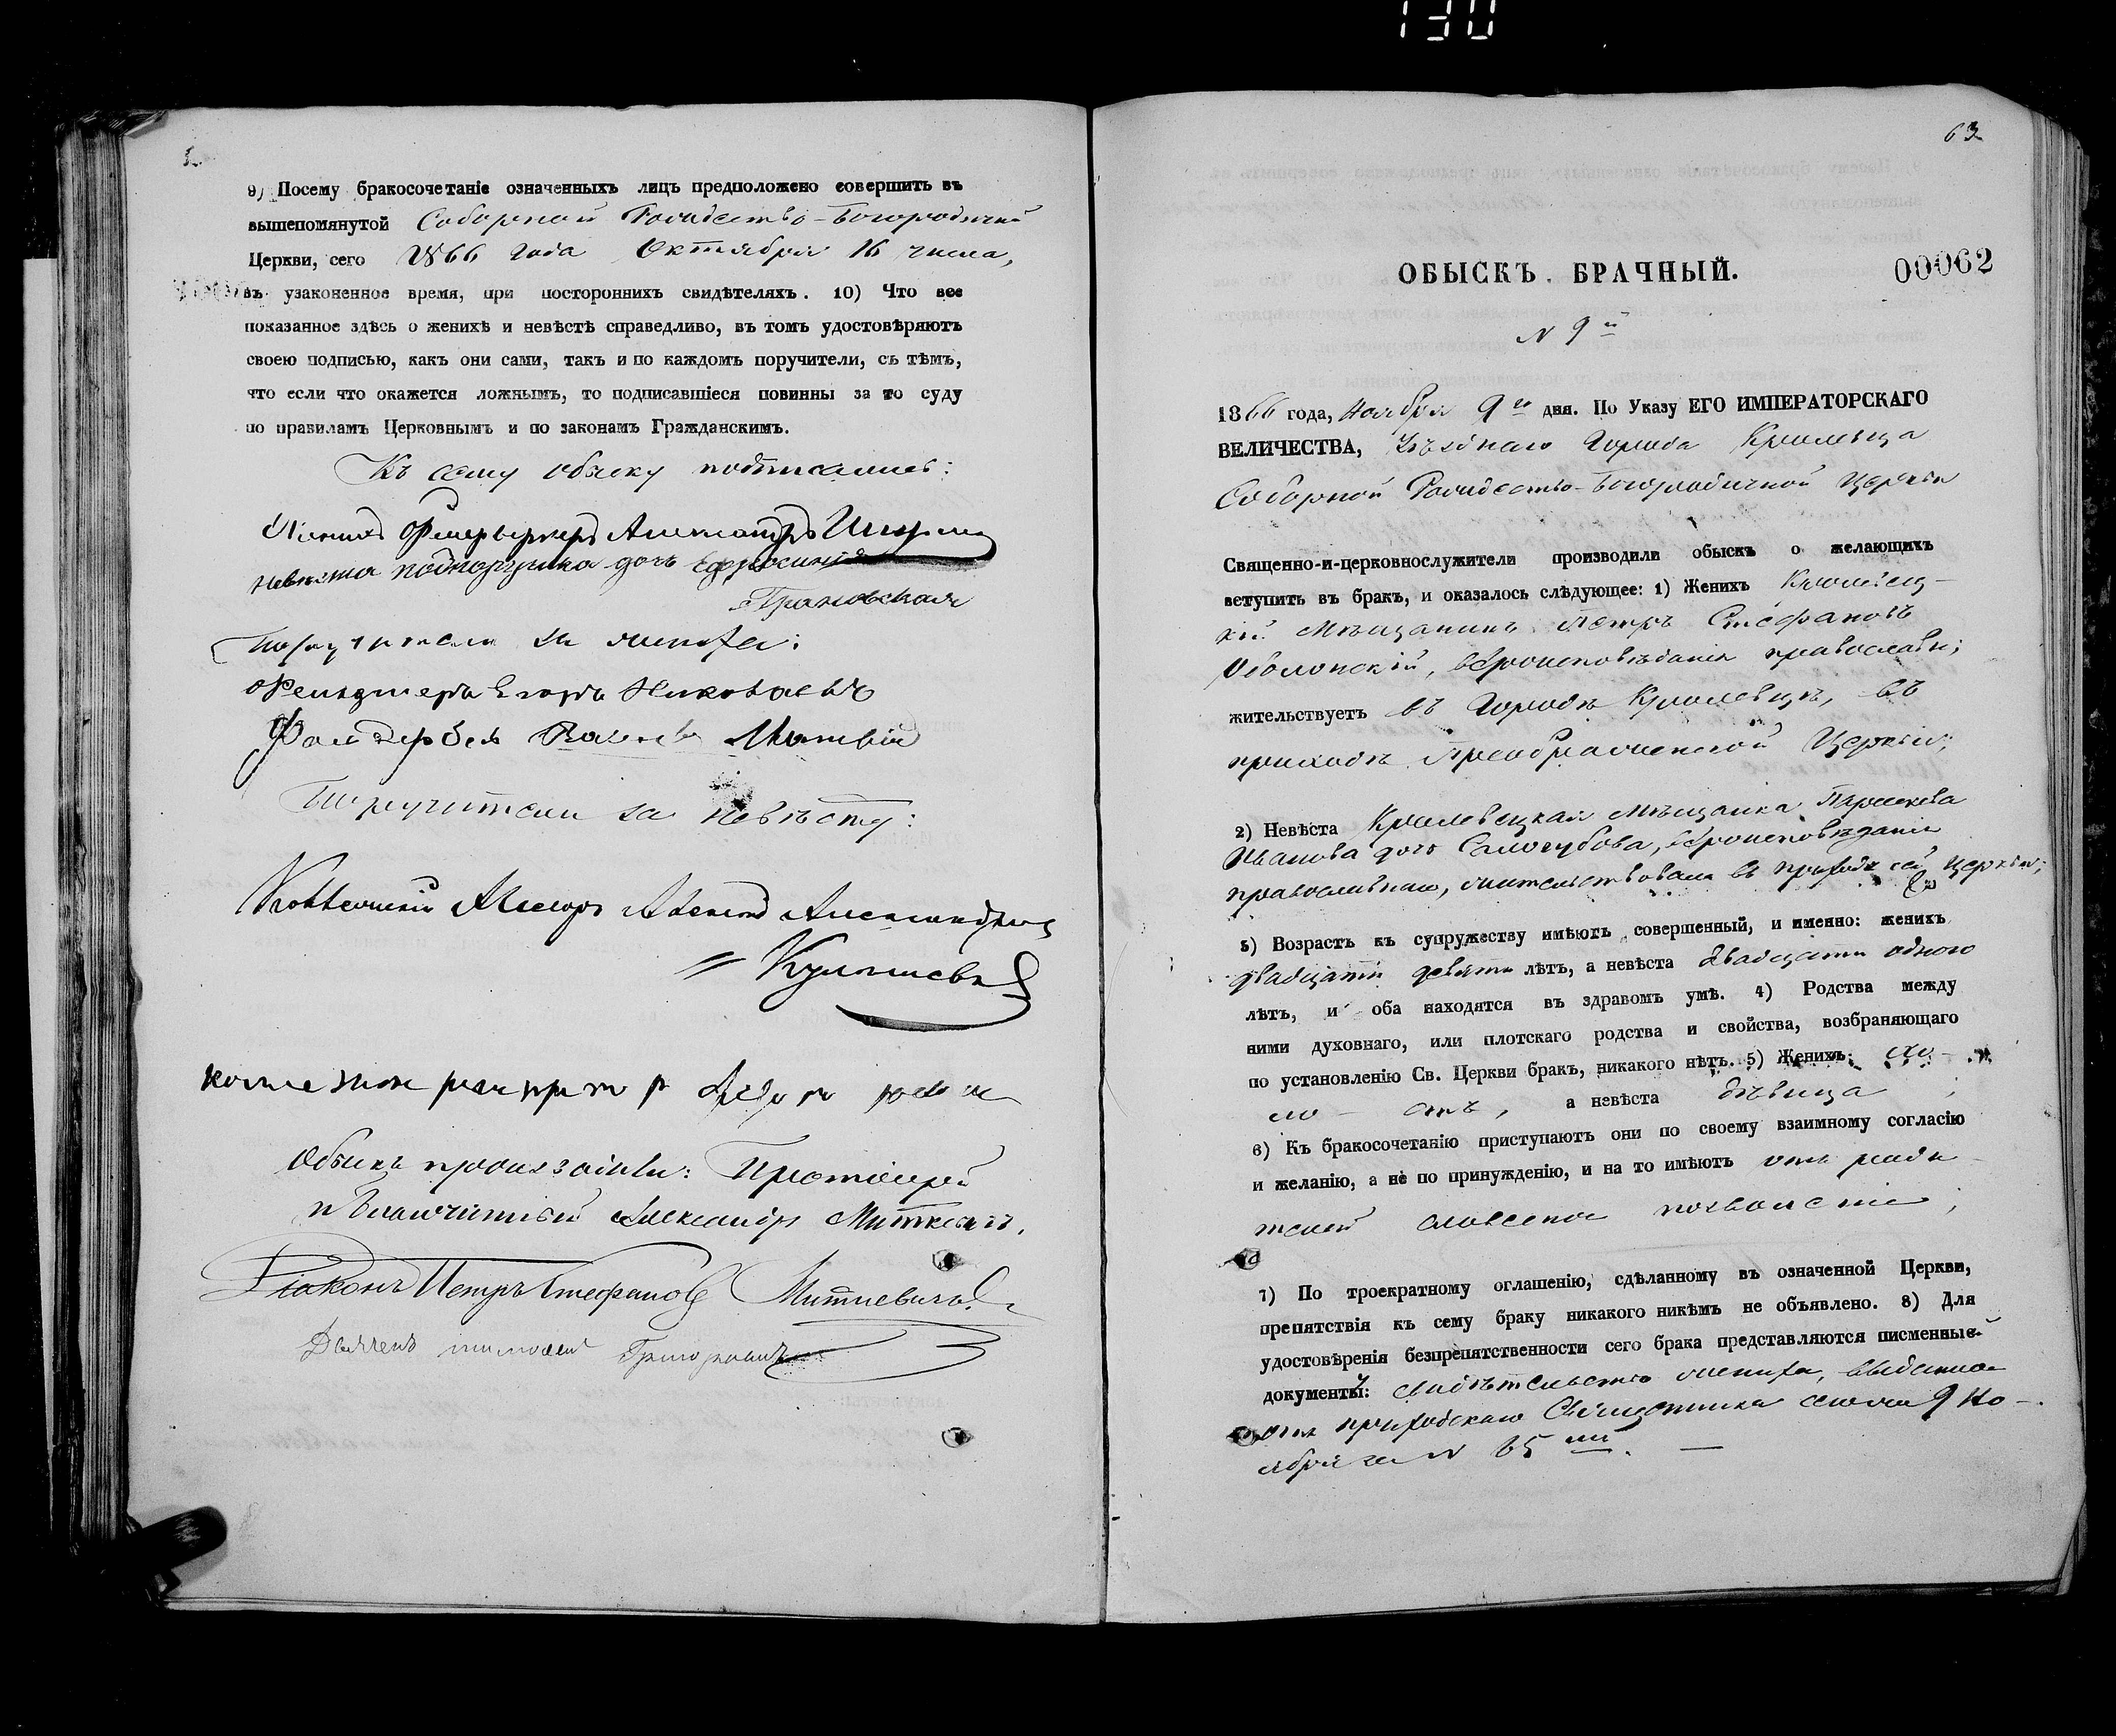 130
9) Посему бракосочетаніе означенныхъ лицъ предположено совершить въ
вышепомянутой Соборной Рождество-Богородичной
Церкви, сего 1866 года Октября 16 числа,
въ узаконенное время, при постороннихъ свидѣтеляхъ. 10) Что все
показанное здѣсь о женихѣ и невѣстѣ справедливо, въ томъ удостовѣряютъ
своею подписью, какъ они сами, такъ и по каждомъ поручители, съ тѣмъ,
что если что окажется ложнымъ, то подписавшіеся повинны за то суду
по правиламъ Церковнымъ и по законамъ Гражданскимъ.
Къ сему обыску подписались:
Женихъ Фейерверкеръ Александръ
невѣста подпоручика дочь Ефросинія
Грановская
Поручители за жениха:
Егоръ Николаевъ
Поручители за невѣсту:
Ассесоръ Александровъ
Обыскъ производили: Протоіерей
и благочинный Александръ Миткевичъ.
Діаконъ Петръ Стефановъ Миткевичъ.
Дьячекъ Григоровичъ
63
ОБЫСКЪ БРАЧНЫЙ.
00062
N 9й
1866 года, Ноября 9го дня. По Указу ЕГО ИМПЕРАТОРСКАГО
ВЕЛИЧЕСТВА, Уѣзднаго Города Кролевца
Соборной Рождество-Богородичной Церкви
Священно-и-церковнослужители производили обыскъ о желающихъ
вступить въ бракъ, и оказалось слѣдующее: 1) Женихъ Кролевец-
кій Мѣщанинъ Петръ Стефановъ
Оболонскій, вѣроисповѣданія православн;
жительствуетъ въ Городѣ Кролевцѣ, въ
приходѣ Преображенской Церкви;
2) Невѣста Кролевецкая мѣщанка Параскева
Иванова дочь Самогубова, вѣроисповѣданія
православнаго, жительствовала въ приходѣ сей Церкви;
3) Возрастъ къ супружеству имѣютъ совершенный, и именно: женихъ
двадцати девяти лѣтъ, а невѣста двадцати одного
лѣтъ, и оба находятся въ здравомъ умѣ. 4) Родства между
ними духовнаго, или плотскаго родства и свойства, возбраняющаго
по установленію Св. Церкви бракъ, никакого нѣтъ. 5) Женихъ: хо-
ло- стъ, а невѣста дѣвица;
6) Къ бракосочетанію приступаютъ они по своему взаимному согласію
и желанію, а не по принужденію, и на то имѣютъ отъ роди-
телей словесное позволеніе;
7) По троекратному оглашенію, сдѣланному въ означенной Церкви,
препятствія къ сему браку никакого никѣмъ не объявлено. 8) Для
удостовѣренія безпрепятственности сего брака представляются писменные
документы: свидѣтельство жениха, выданное
отъ приходскаго Священника сего 9 Но-
ября за N 65мъ.